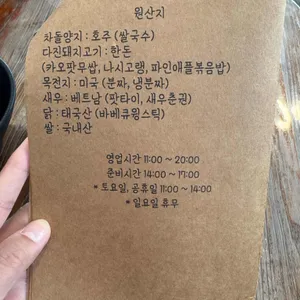 원산지
차돌양지 : 호주 (쌀국수)
다진돼지고기 : 한돈
(카오팟무쌉, 나시고랭, 파인애플볶음밥)
목전지 : 미국 (분짜, 냉분짜)
새우 : 베트남 (팟타이, 새우춘권)
닭 : 태국산 (바베큐윙스틱)
쌀 : 국내산
영업시간 11:00 ~ 20:00
준비시간 14:00 ~ 17:00
* 토요일, 공휴일 11:00 ~ 14:00
* 일요일 휴무